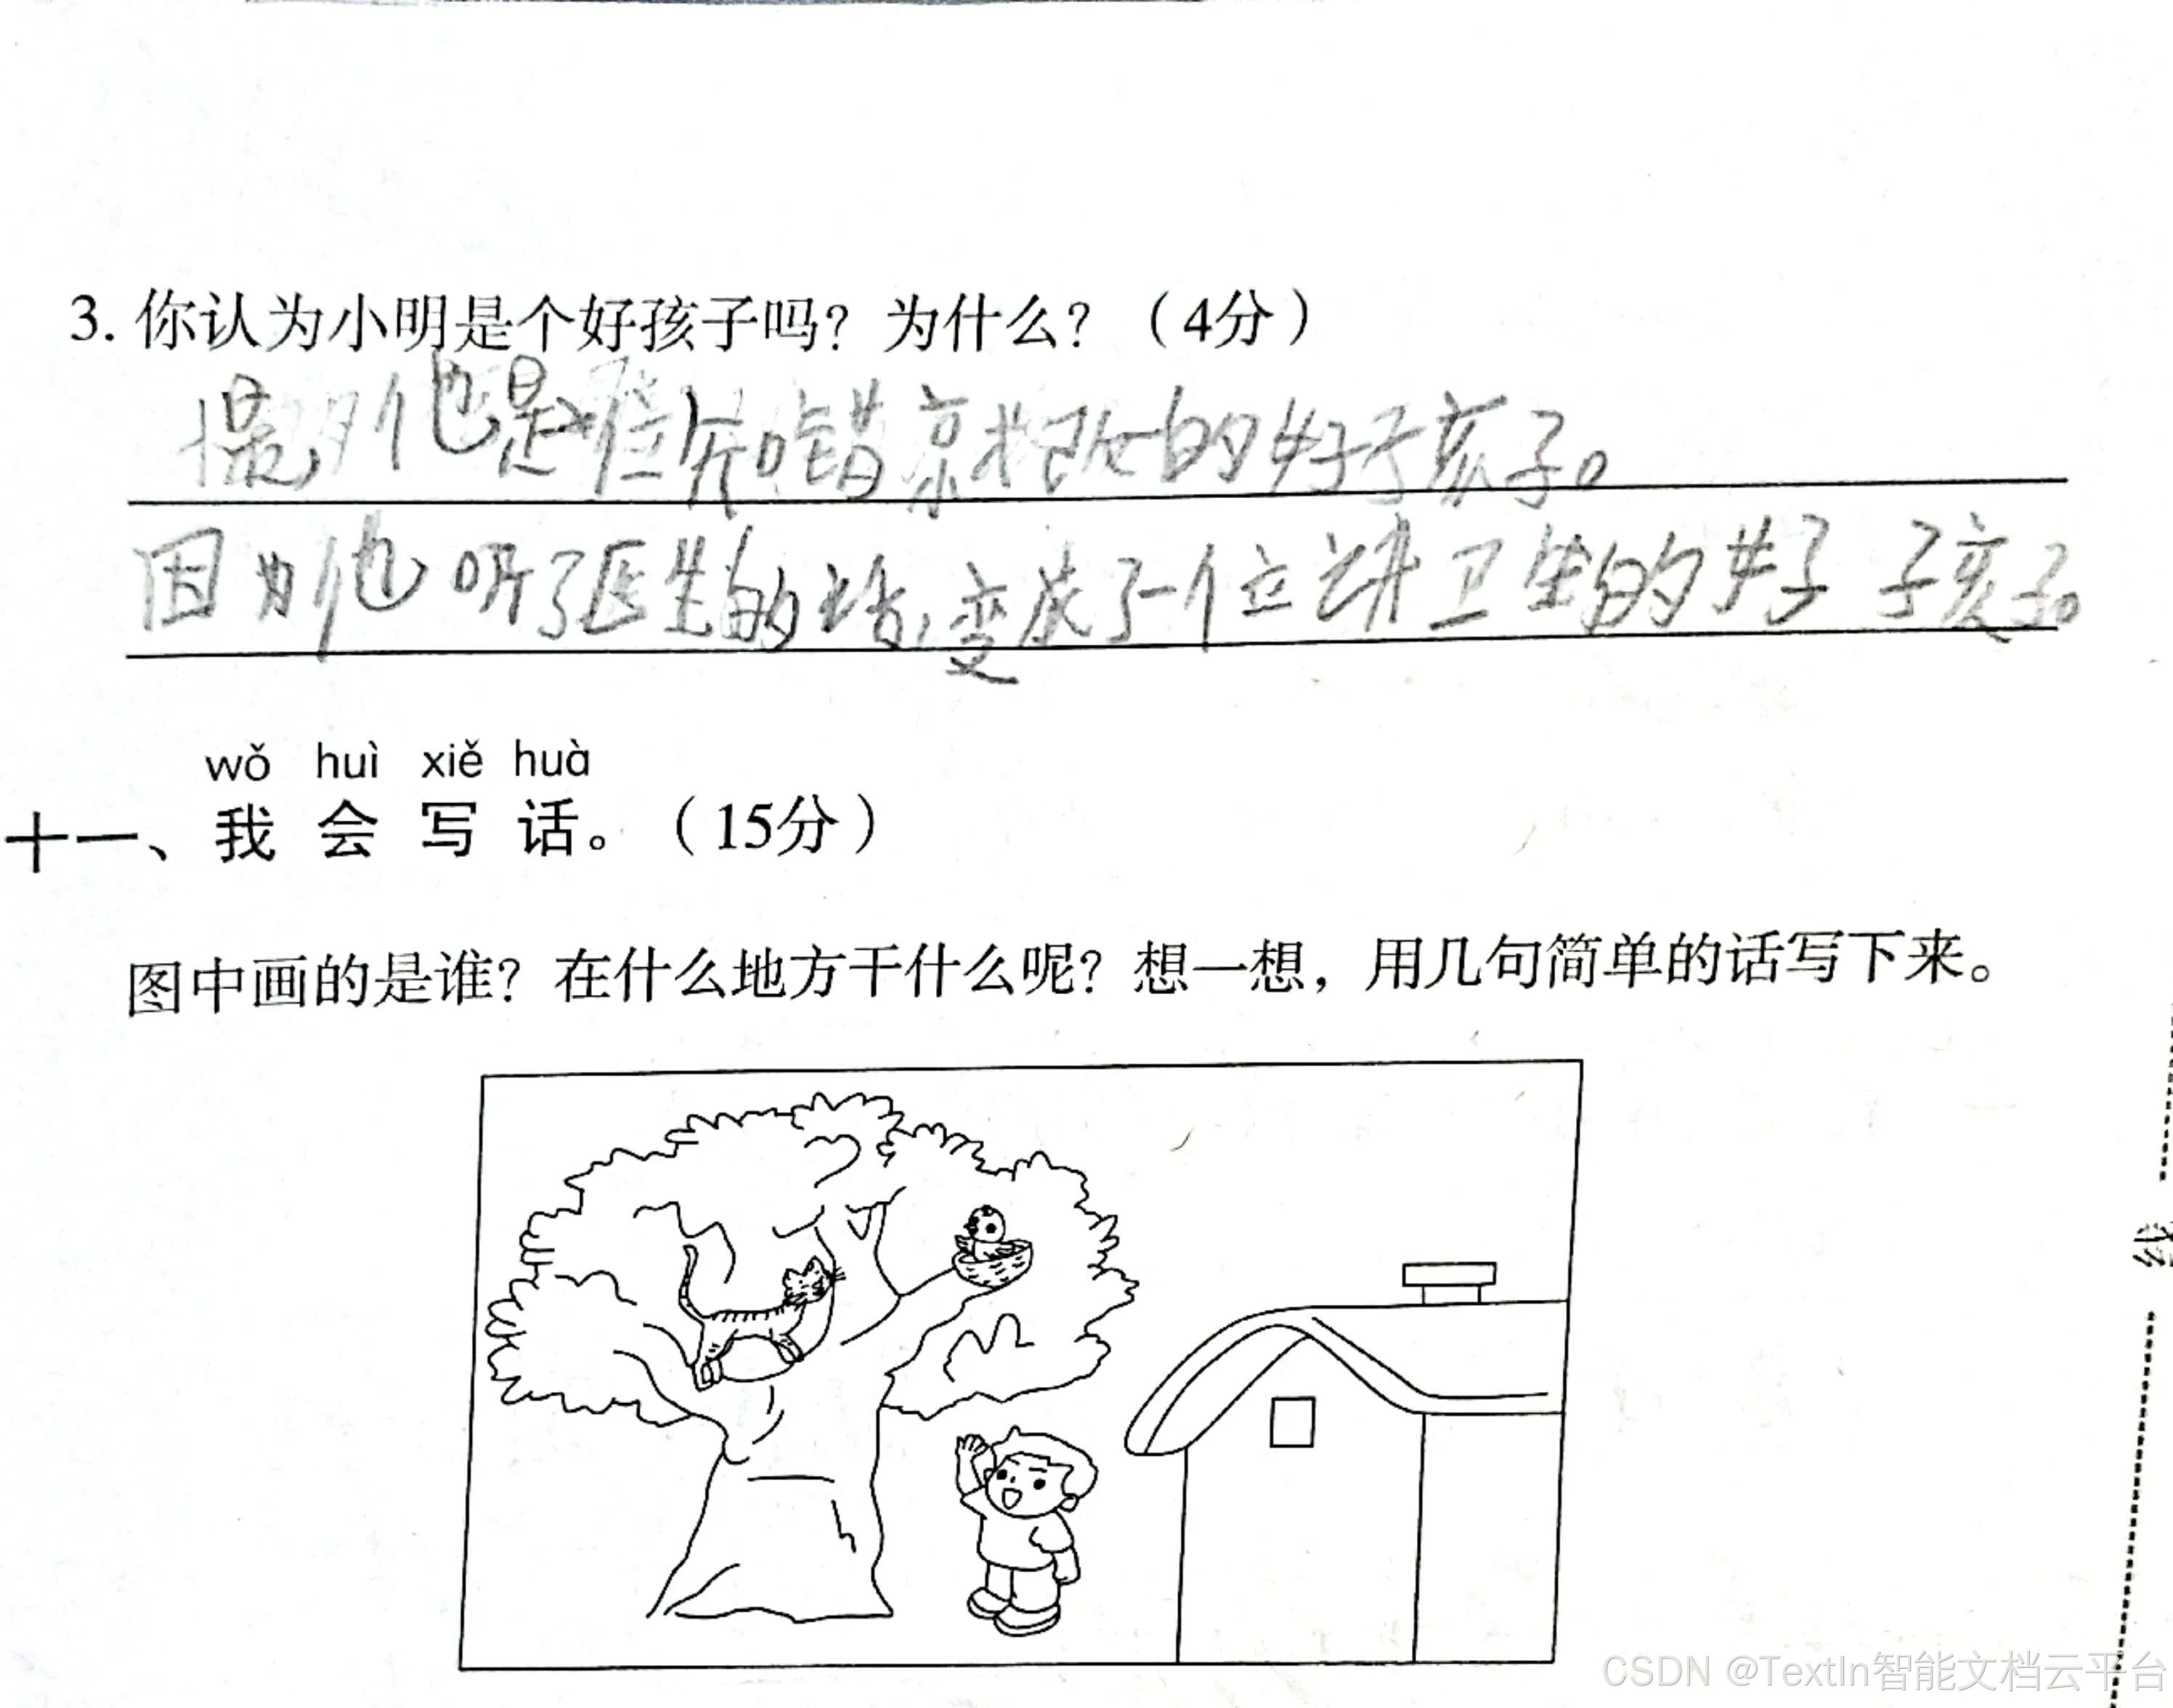 3. 你认为小明是个好孩子吗？为什么？（4分）
是，他是一位知错就改的好孩子。
因为他听了医生的话，变成了一个位讲卫生的好孩子。
wǒ huì xiě huà
十一、我会写话。（15分）
图中画的是谁？在什么地方干什么呢？想一想，用几句简单的话写下来。
CSDN @TextIn智能文档云平台